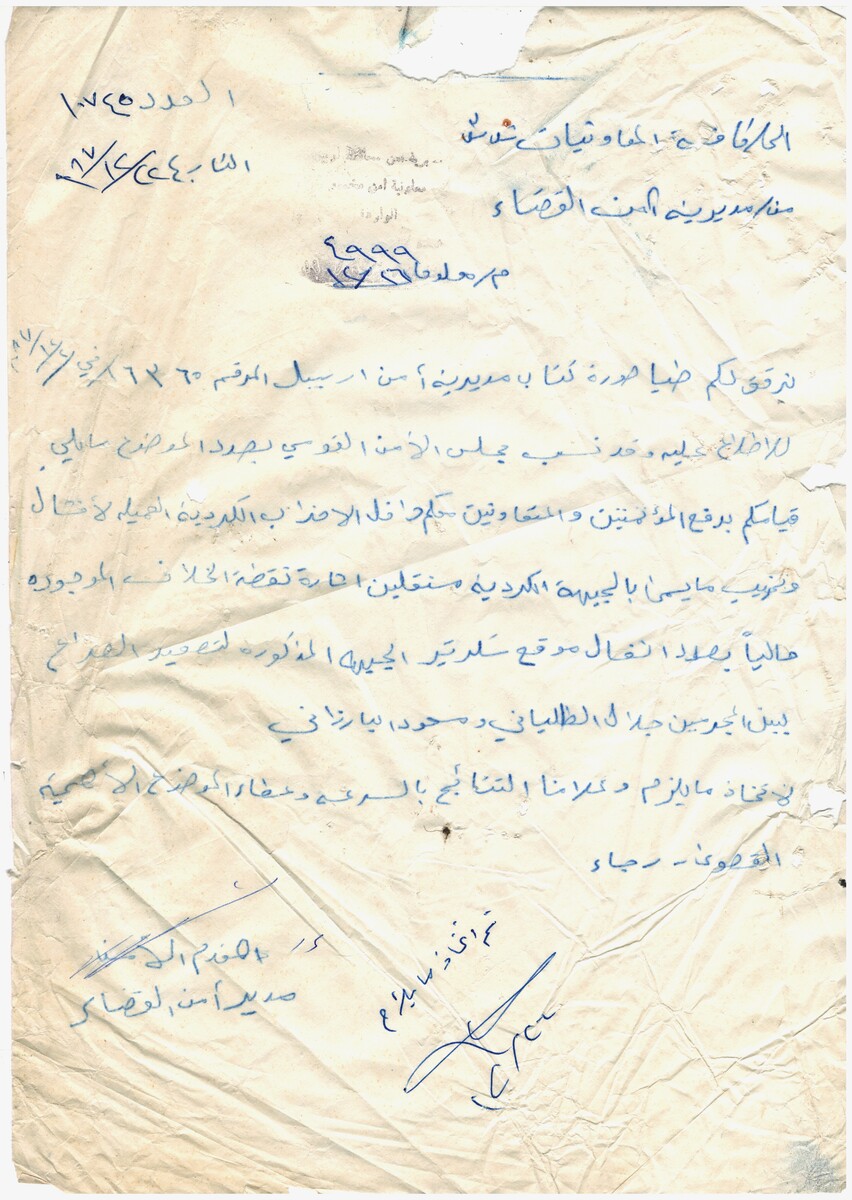 العدد ١٠٧٤٥
التاريخ ٢٤/١٢/٩٨٧
الى/كافة المعاونيات
من/مديرية امن القضاء
معاونية امن
الواردة
٤٩٩٩
١٢/٢٦
م/معلومات
نرفق لكم طيا صورة كتاب مديرية أمن اربيل المرقم ٦٣٦٥ في
للاطلاع عليه وقد نسب مجلس الأمن القومي بصدد الموضوع مايلي
قيامكم بدفع المؤتمنين والمتعاونين معكم داخل الاحزاب الكردية العميله لأفشال
وتخريب مايسمى بالجبهة الكردية مستغلين اثارة نقطة الخلاف الموجوده
حالياً بصدد اشغال موقع سكرتير الجبهه المذكوره لتصعيد الصراع
بين المجرمين جلال الطلباني ومسعود البارزاني
لاتخاذ مايلزم وعلامنا النتائج بالسرعه وعطاء الموضوع الأهمية
القصوى - رجاء
المقدم الأمن
مدير أمن القضاء
تم اتخاذ ما يلزم
١٢/٢٦